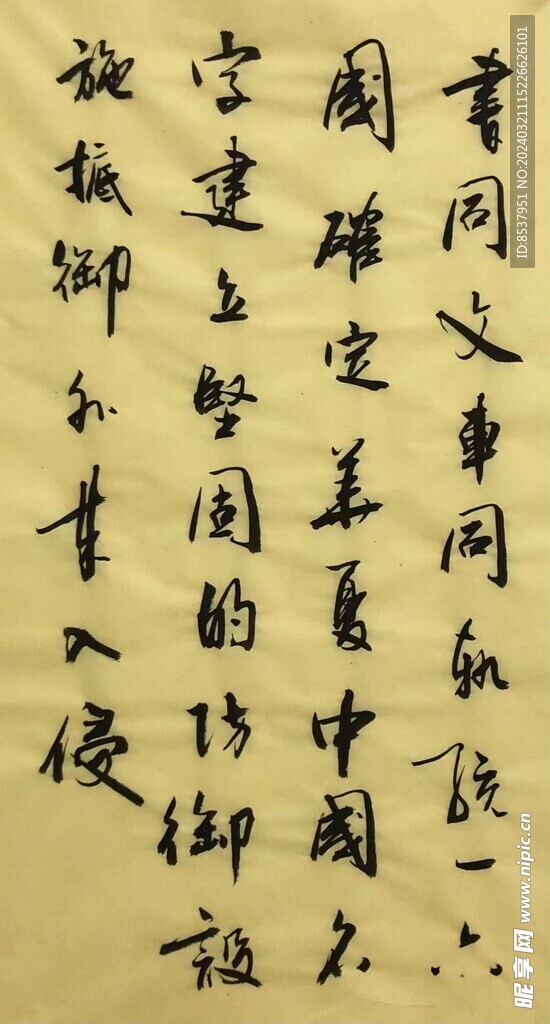 書同文車同軌統一六
國確定華夏中國名
字建立堅固的防御設
施抵御外某入侵
ID:8537951 NO:20240321115226626101
昵享网 www.nipic.cn